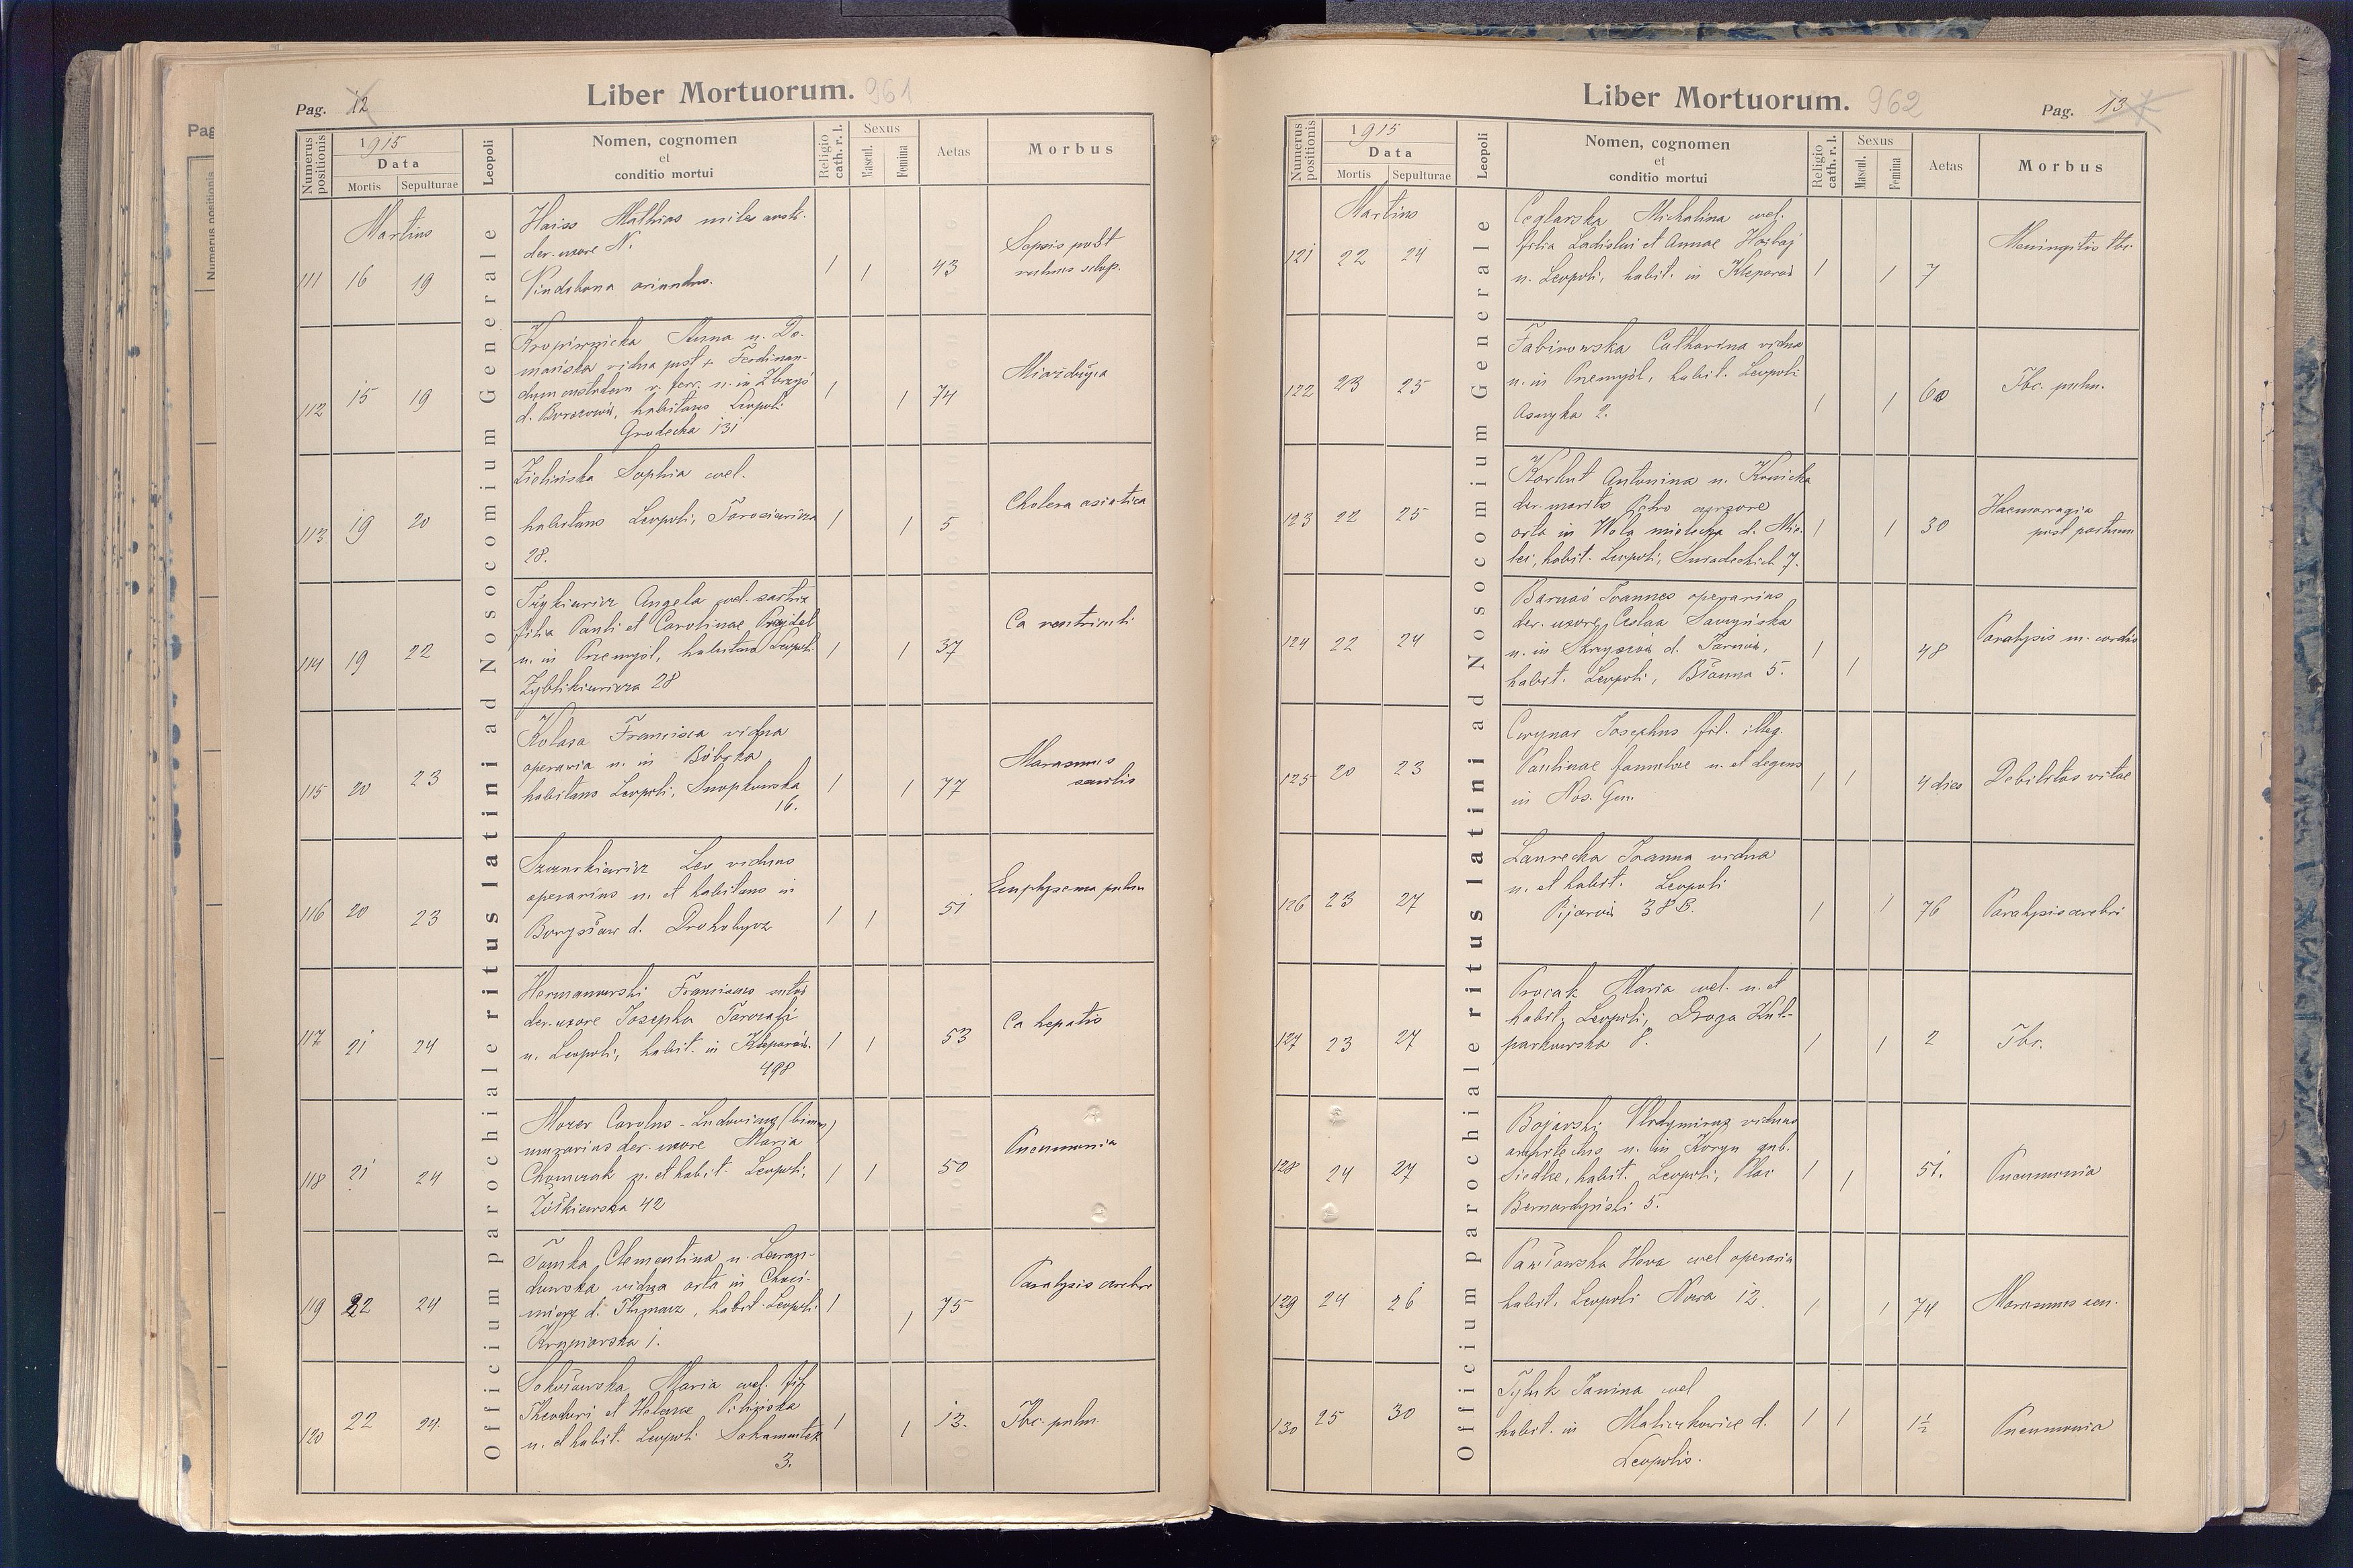 Liber Mortuorum. 961
Pag. 12
Numerus positionis
1915
Data
Mortis Sepulturae
Leopoli
Nomen, cognomen
et
conditio mortui
Religio cath. r. l.
Sexus
Mascul. Femina
Aetas
Morbus
Officium parochiale ritus latini ad Nosocomium Generale
Martius
111 16 19
Haiss Mathias miles austr.
der. uxore N.
Vindobona oriundus.
1 1 43
Sepsis post
vulnus sclop.
112 15 19
Anna n. Do-
mańska vidua post + Ferdinan-
habitans Leopoli
Grodecka 131
1 1 74
113 19 20
Zielińska Sophia cael.
habitans Leopoli,
28.
1 1 5
Cholera asiatica
114 19 22
Angela cael. sartrix
filia Pauli et Carolinae
n. in Przemyśl, habitans Leopoli
Zyblikiewicza 28
1 1 37
Ca ventriculi
115 20 23
Kolasa Francisca vidua
operaria n. in Bóbrka
habitans Leopoli, Snopkowska
16.
1 1 77
Marasmus
senilis
116 20 23
Leo viduus
operarius n. et habitans in
Borysław d. Drohobycz
1 1 51
Emphysema pulm
117 21 24
Hermanowski Franciscus sutor
der. uxore Josepha
n. Leopoli, habit. in Kleparów.
498
1 1 53
Ca hepatis
118 21 24
Mozer Carolus - Ludovicus (binom)
murarius der. uxore Maria
n. et habit. Leopoli,
Żółkiewska 42
1 1 50
Pneumonia
119 22 24
Tomka Clementina n. Lewan-
dowska vidua orta in Choci-
mierz d. Tłumacz, habit. Leopoli
1.
1 1 75
Paralysis cerebri
120 22 24
Sokołowska Maria cael. fil.
Theodori et Helenae
n. et habit. Leopoli Sakramentek
3.
1 1 13.
Tbc. pulm.
Liber Mortuorum. 962
Pag. 13
Numerus positionis
1915
Data
Mortis Sepulturae
Leopoli
Nomen, cognomen
et
conditio mortui
Religio cath. r. l.
Sexus
Mascul. Femina
Aetas
Morbus
Officium parochiale ritus latini ad Nosocomium Generale
Martius
121 22 24
Ceglarska Michalina cael.
filia Ladislai et Annae
n. Leopoli, habit. in Kleparów
1 1 7
Meningitis tbc.
122 23 25
Fabirowska Catharina vidua
n. in Przemyśl, habit. Leopoli
Asnyka 2.
1 1 60
Tbc. pulm.
123 22 25
Korbut Antonina n. Konicka
der. marito Petro
orta in Wola mielecka d. Mie-
lec, habit. Leopoli, Śniadeckich 7.
1 1 30
Haemorragia
post partum
124 22 24
Barnaś Joannes operarius
der. uxore Ceslaa
n. in Skrzyszów d. Tarnów,
habit. Leopoli, Błonna 5.
1 1 48
Paralysis m. cordis
125 20 23
Cwynar Josephus fil. illeg.
Paulinae famulae n. et degens
in Nos. Gen.
1 1 4 dies
Debilitas vitae
126 23 27
Lanrecka Joanna vidua
n. et habit. Leopoli
Pijarów 38B.
1 1 76
Paralysis cerebri
127 23 27
Procak Maria cael. n. et
habit. Leopoli, Droga Kul-
parkowska 8.
1 1 2
Tbc.
128 24 27
Bojarski Vladymirus viduus
n. in gub.
Siedlce, habit. Leopoli, Plac
Bernardyński 5.
1 1 51.
Pneumonia
129 24 26
Pawłowska Eva cael operaria
habit. Leopoli Nowa 12.
1 1 74
Marasmus sen.
130 25 30
Janina cael
habit. in Maliczkowice d.
Leopolis.
1 1 1½
Pneumonia